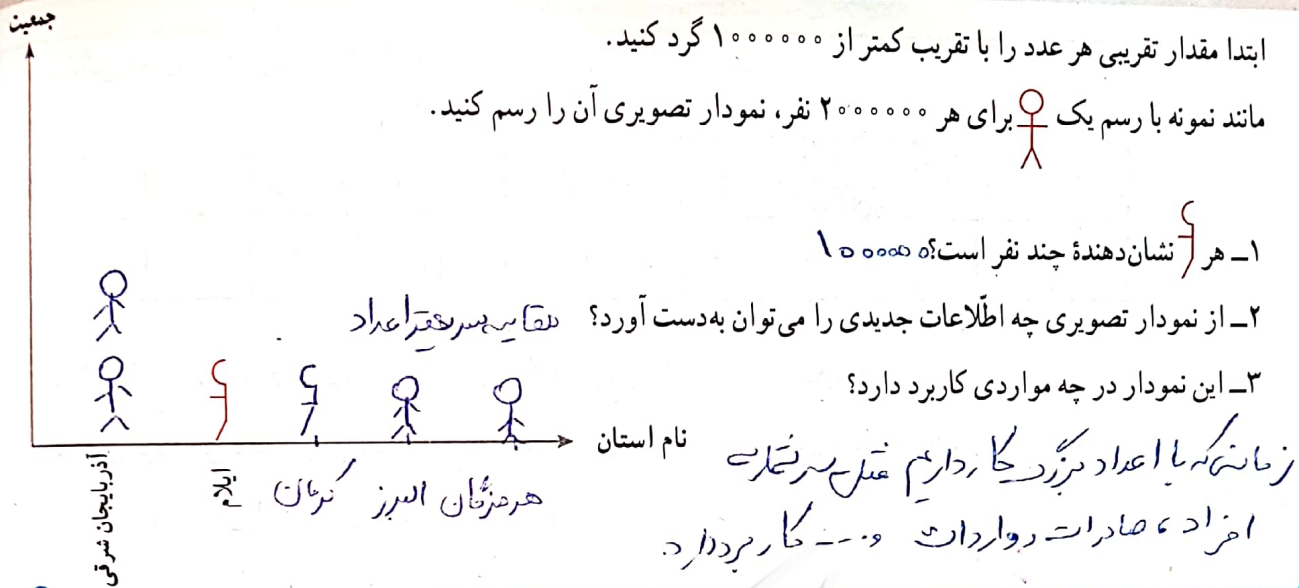 جمعیت
ابتدا مقدار تقریبی هر عدد را با تقریب کمتر از ۱۰۰۰۰۰۰ گرد کنید.
مانند نمونه با رسم یک برای هر ۲۰۰۰۰۰۰ نفر، نمودار تصویری آن را رسم کنید.
۱ـ هر نشان‌دهندهٔ چند نفر است؟ ۱۰۰۰۰۰۰
۲ـ از نمودار تصویری چه اطّلاعات جدیدی را می‌توان به‌دست آورد؟ مقایسه سریعتر اعداد
۳ـ این نمودار در چه مواردی کاربرد دارد؟
زمانی که با اعداد بزرگ کار داریم مثل سرشماری
افراد، صادرات و واردات و... کاربرد دارد.
نام استان
آذربایجان شرقی
ایلام
کرمان
البرز
هرمزگان